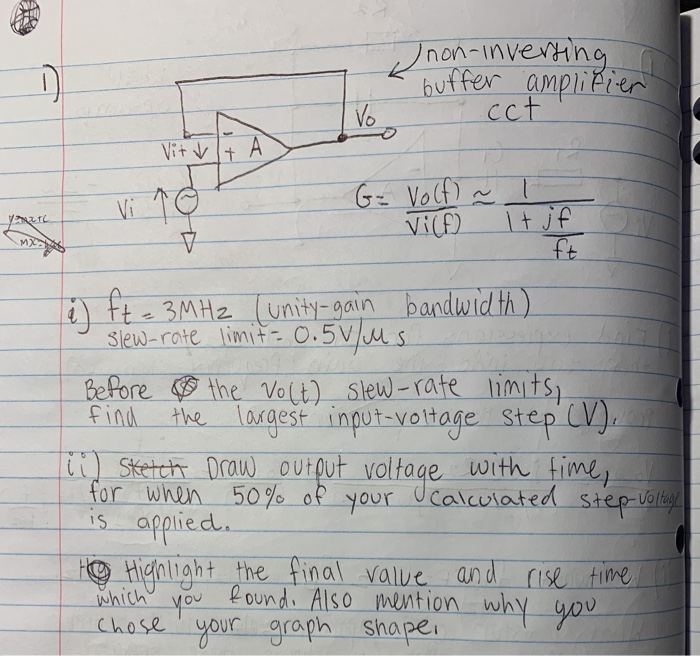 1)
non-inverting
buffer amplifier
cct
Vo
Vi+ ↓
-
+ A
Vi ↑
G = Vo(f) / Vi(f) ≈ 1 / (1 + jf / ft)
y=mx+c
i) ft = 3MHz (unity-gain bandwidth)
slew-rate limit = 0.5V/μs
Before the Vo(t) slew-rate limits,
find the largest input-voltage step (V).
ii) Sketch Draw output voltage with time,
for when 50% of your calculated step-voltage
is applied.
Highlight the final value and rise time
which you found. Also mention why you
chose your graph shape.